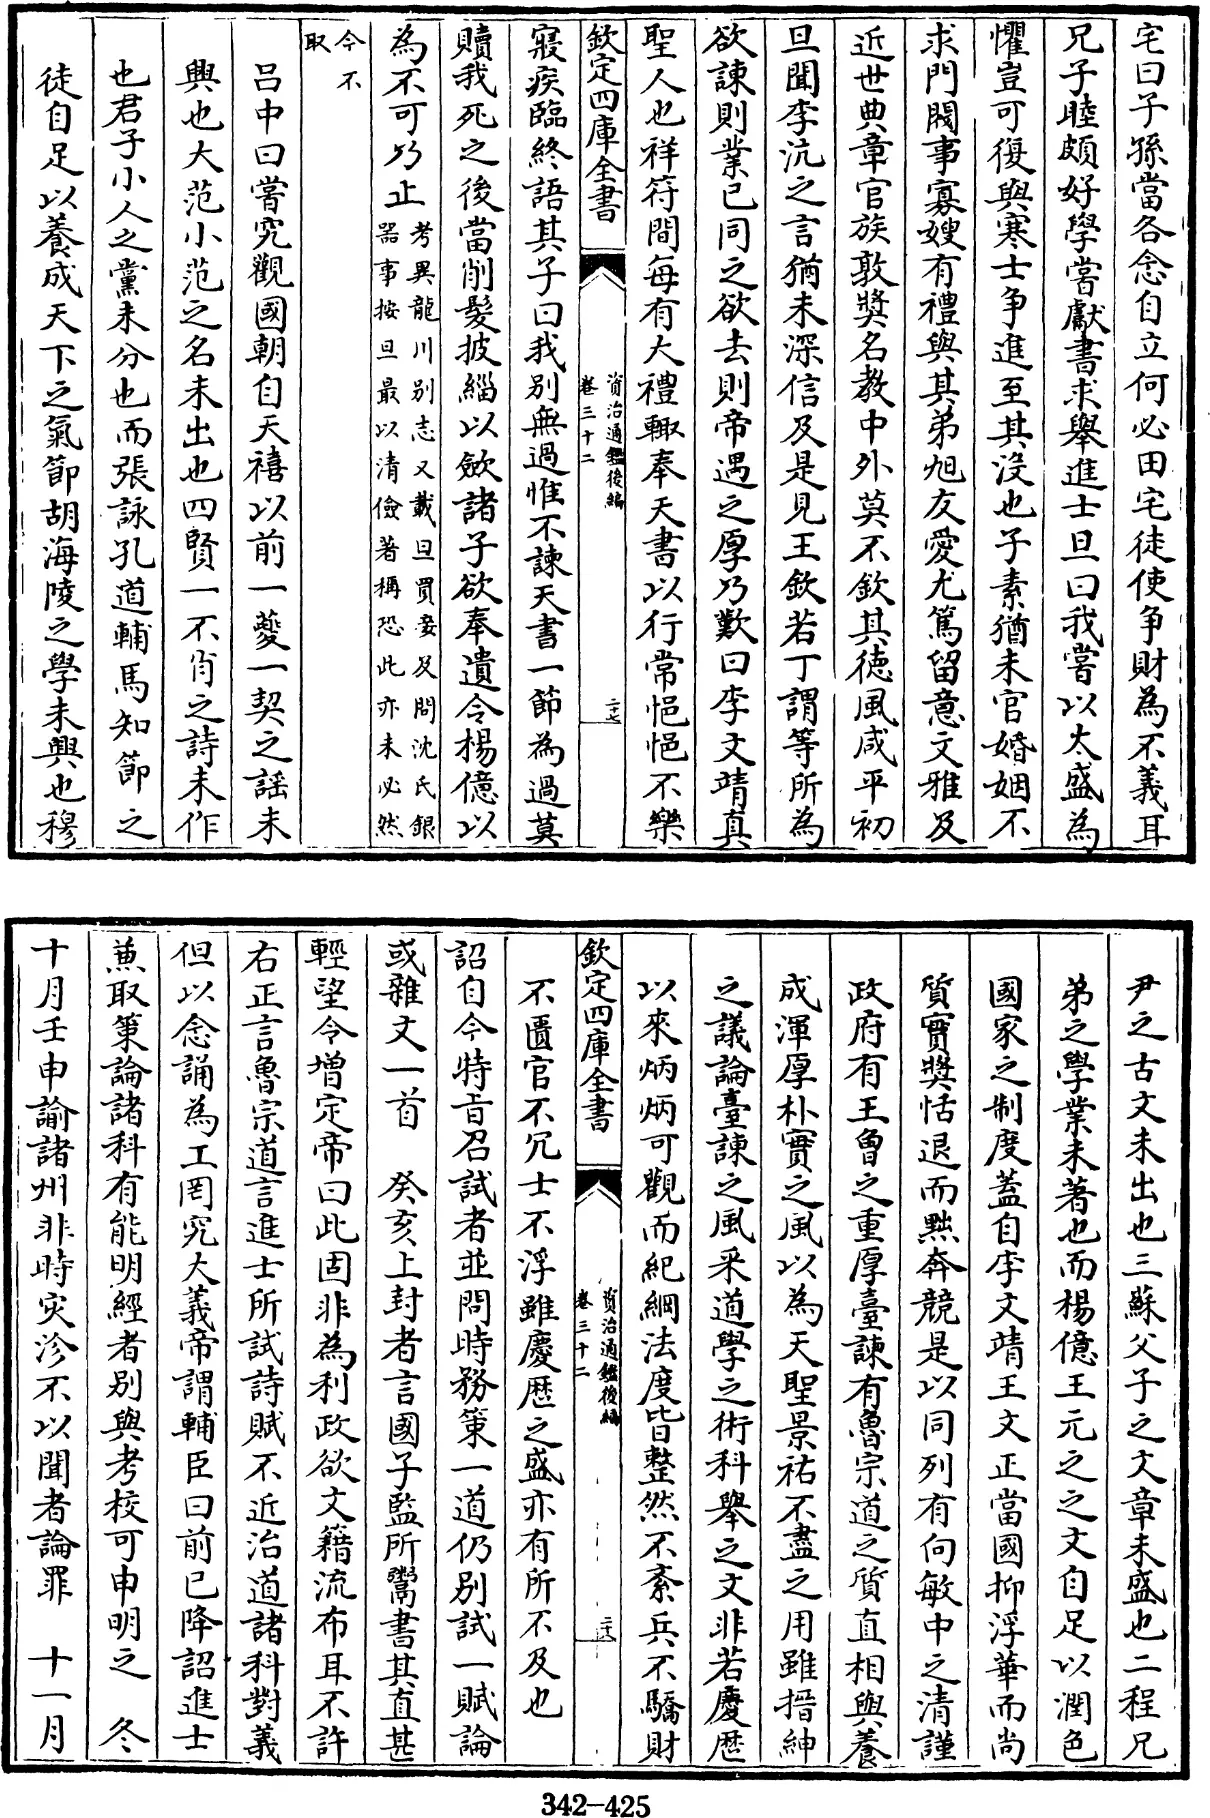 宅曰子孫當各念自立何必田宅徒使争財為不義耳
兄子睦頗好學嘗獻書求舉進士旦曰我嘗以太盛為
懼豈可復與寒士争進至其沒也子素猶未官婚姻不
求門閥事寡嫂有禮與其弟旭友愛尤篤留意文雅及
近世典章官族敦奬名教中外莫不欽其徳風咸平初
旦聞李沆之言猶未深信及是見王欽若丁謂等所為
欲諫則業已同之欲去則帝遇之厚乃歎曰李文靖真
聖人也祥符間每有大禮輒奉天書以行常悒悒不樂
欽定四庫全書
資治通鑑後編
卷三十二
二十七
寢疾臨終語其子曰我别無過惟不諫天書一節為過莫
贖我死之後當削髮披緇以斂諸子欲奉遺令楊億以
為不可乃止
考異龍川别志又載旦買妾及問沈氏銀
器事按旦最以清儉著稱恐此亦未必然
今不
取
吕中曰嘗究觀國朝自天禧以前一夔一契之謡未
興也大范小范之名未出也四賢一不肖之詩未作
也君子小人之黨未分也而張詠孔道輔馬知節之
徒自足以養成天下之氣節胡海陵之學未興也穆
尹之古文未出也三蘇父子之文章未盛也二程兄
弟之學業未著也而楊億王元之之文自足以潤色
國家之制度蓋自李文靖王文正當國抑浮華而尚
質實奬恬退而黜奔競是以同列有向敏中之清謹
政府有王曾之重厚臺諫有魯宗道之質直相與養
成渾厚朴實之風以為天聖景祐不盡之用雖搢紳
之議論臺諫之風采道學之術科舉之文非若慶歴
以來炳炳可觀而紀綱法度皆整然不紊兵不驕財
欽定四庫全書
資治通鑑後編
卷三十二
二十八
不匱官不冗士不浮雖慶厯之盛亦有所不及也
詔自今特旨召試者並問時務策一道仍别試一賦論
或雜文一首　癸亥上封者言國子監所鬻書其直甚
輕望令增定帝曰此固非為利政欲文籍流布耳不許
右正言魯宗道言進士所試詩賦不近治道諸科對義
但以念誦為工罔究大義帝謂輔臣曰前已降詔進士
兼取策論諸科有能明經者别與考校可申明之　冬
十月壬申諭諸州非時灾沴不以聞者論罪　十一月
342-425